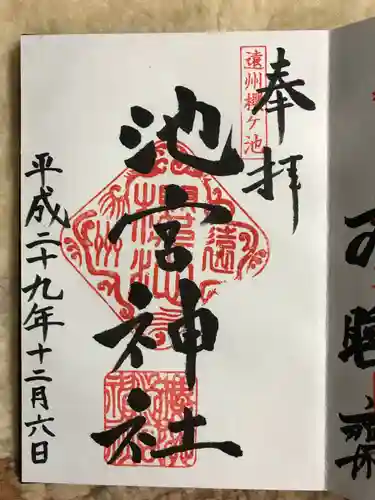 奉拝
遠州櫻ヶ池
池宮神社
平成二十九年十二月六日